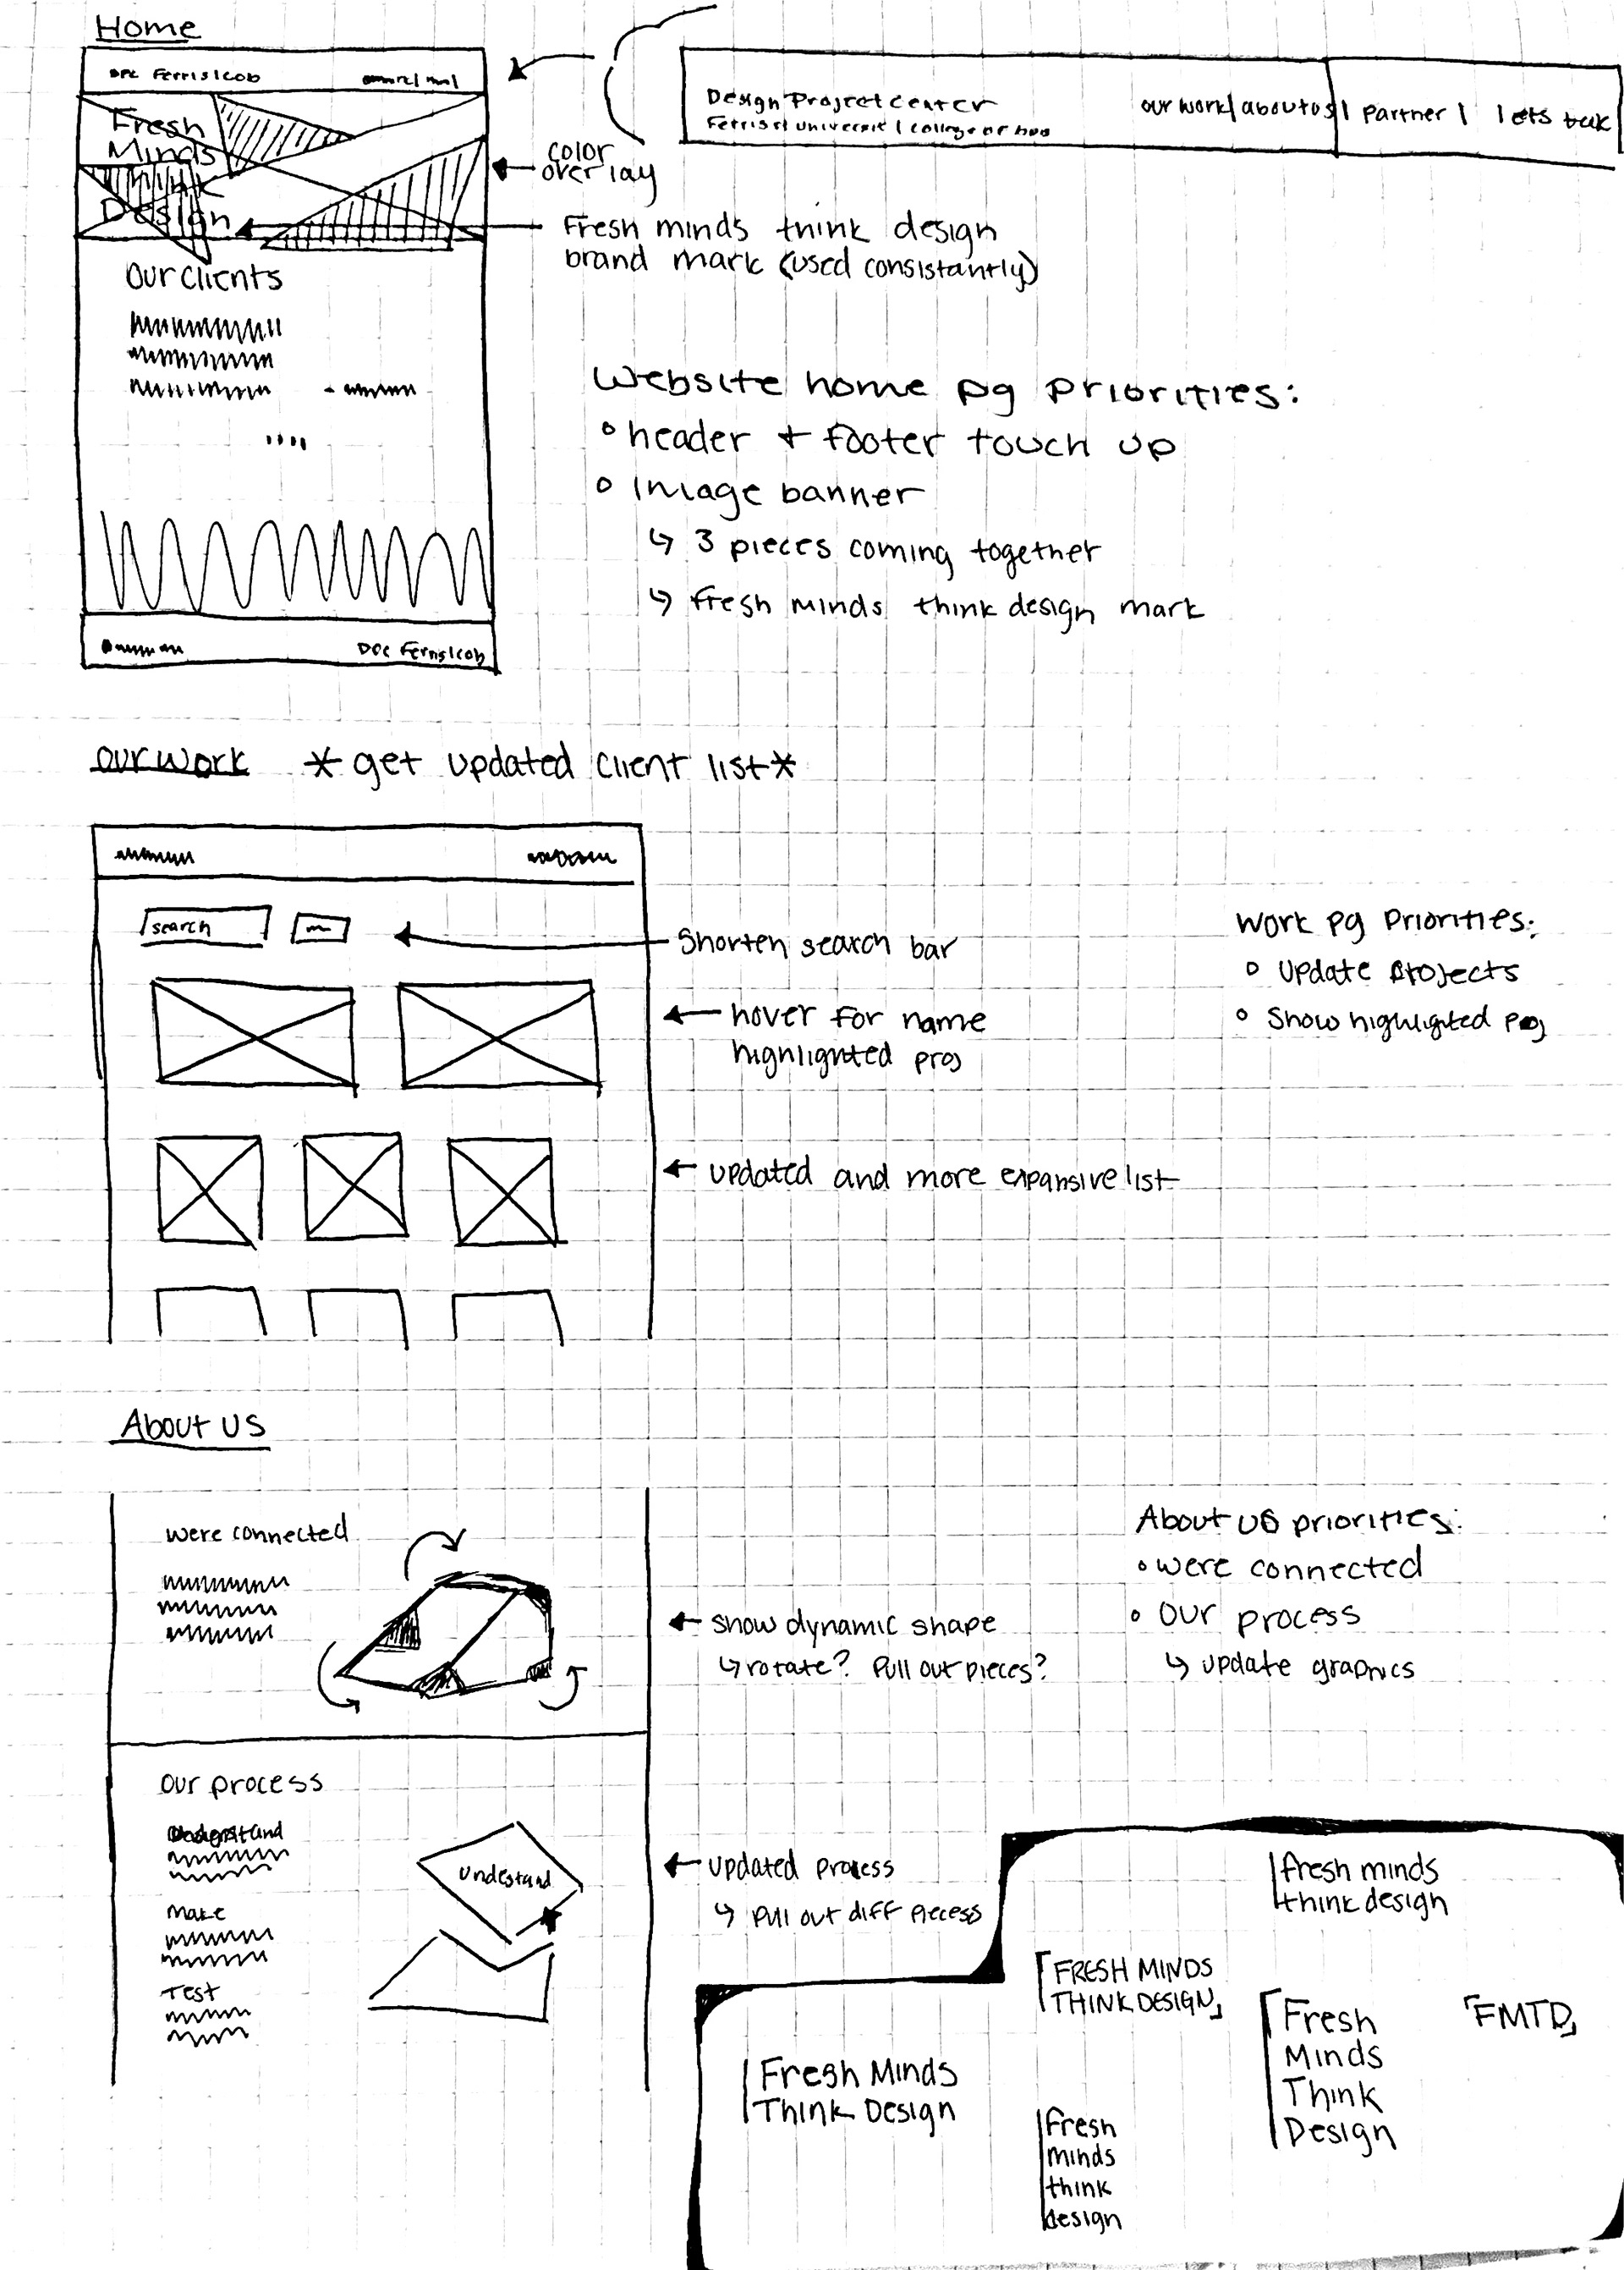 Home
DPC Ferris|cob
Fresh
Minds
Think
Design
Our clients
DPC Ferris|cob
Design Project Center
our work | about us | partner | lets talk
color
overlay
Fresh minds think design
brand mark (used consistantly)
Website home pg priorities:
header + footer touch up
Image banner
↳ 3 pieces coming together
↳ fresh minds think design mark
our work *get updated client list*
search
Shorten search bar
hover for name
highlighted proj
updated and more expansive list
Work pg Priorities:
Update Projects
Show highlighted proj
About Us
were connected
show dynamic shape
↳ rotate? Pull out pieces?
About us priorities:
were connected
our process
↳ update graphics
our process
Understand
make
Test
Undestand
updated process
↳ pull out diff piecess
fresh minds
think design
FRESH MINDS
THINK DESIGN
Fresh
Minds
Think
Design
FMTD
Fresh Minds
Think Design
fresh
minds
think
design